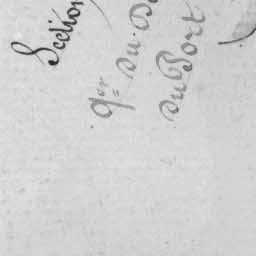 Section
qer du
du Port